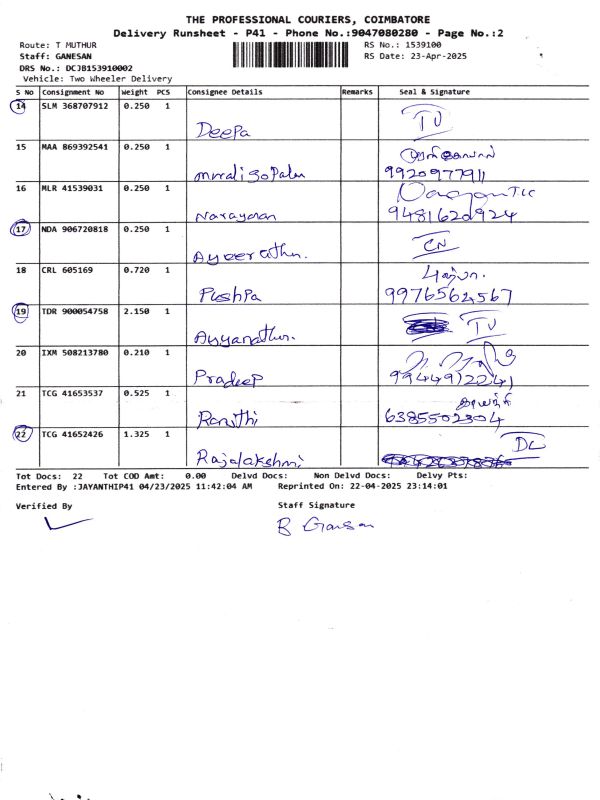 THE PROFESSIONAL COURIERS, COIMBATORE
Delivery Runsheet - P41 - Phone No.:9047080280 - Page No.:2
Route: T MUTHUR RS No.: 1539100
Staff: GANESAN RS Date: 23-Apr-2025
DRS No.: DCJB153910002
Vehicle: Two Wheeler Delivery
S No Consignment No Weight PCS Consignee Details Remarks Seal & Signature
14 SLM 368707912 0.250 1
Deepa TU
15 MAA 869392541 0.250 1
muraligopalan 9920977911
16 MLR 41539031 0.250 1
Narayanan 9481620924
17 NDA 906720818 0.250 1
CN
18 CRL 605169 0.720 1 புஷ்பா.
Pushpa 9976562567
19 TDR 900054758 2.150 1
Ayyanathan. TU
20 IXM 508213780 0.210 1
Pradeep 9944912241
21 TCG 41653537 0.525 1
6385502304
22 TCG 41652426 1.325 1 DL
Rajalakshmi
Tot Docs: 22 Tot COD Amt: 0.00 Delvd Docs: Non Delvd Docs: Delvy Pts:
Entered By :JAYANTHIP41 04/23/2025 11:42:04 AM Reprinted On: 22-04-2025 23:14:01
Verified By Staff Signature
B Ganesan